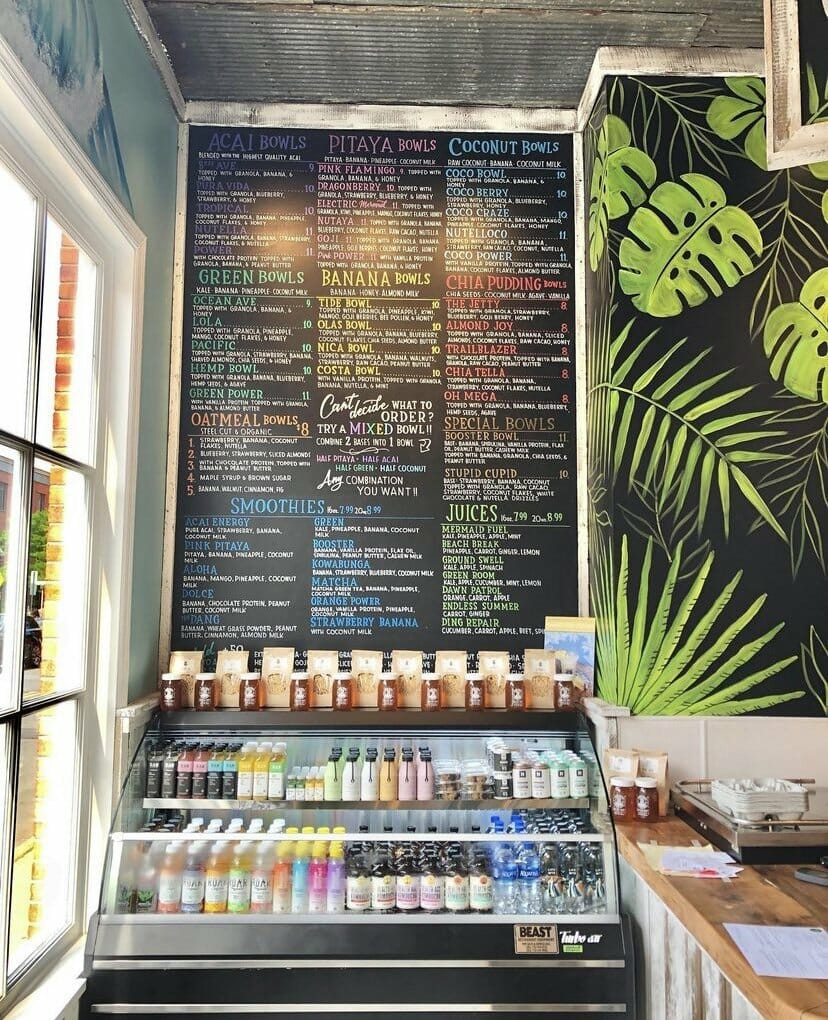 ACAI BOWLS
BLENDED WITH THE HIGHEST QUALITY ACAI
9.
TOPPED WITH GRANOLA, BANANA, & HONEY
PURA VIDA 10
TOPPED WITH GRANOLA, BLUEBERRY, STRAWBERRY, & HONEY
TROPICAL 10
TOPPED WITH GRANOLA, BANANA, PINEAPPLE, COCONUT FLAKES, & HONEY
NUTELLA 11
TOPPED WITH GRANOLA, BANANA, STRAWBERRY, COCONUT FLAKES, & NUTELLA
POWER 11.
WITH CHOCOLATE PROTEIN, TOPPED WITH GRANOLA, BANANA, & PEANUT BUTTER
GREEN BOWLS
KALE · BANANA · PINEAPPLE · COCONUT MILK
OCEAN AVE 9.
TOPPED WITH GRANOLA, BANANA, & HONEY
LOLA 10.
TOPPED WITH GRANOLA, PINEAPPLE, MANGO, COCONUT FLAKES, & HONEY
PACIFIC 10.
TOPPED WITH GRANOLA, STRAWBERRY, BANANA, SHAVED ALMONDS, CHIA SEEDS, & HONEY
HEMP BOWL 10.
TOPPED WITH GRANOLA, BANANA, BLUEBERRY, HEMP SEEDS, & AGAVE
GREEN POWER 11
WITH VANILLA PROTEIN, TOPPED WITH GRANOLA, BANANA, & ALMOND BUTTER
OATMEAL BOWLS $8
STEEL CUT & ORGANIC
1. STRAWBERRY, BANANA, COCONUT FLAKES, NUTELLA
2. BLUEBERRY, SLICED ALMONDS
3. WITH CHOCOLATE PROTEIN, TOPPED WITH BANANA & PEANUT BUTTER
4. MAPLE SYRUP & BROWN SUGAR
5. BANANA, WALNUT, CINNAMON, FIG
PITAYA BOWLS
PITAYA · BANANA · PINEAPPLE · COCONUT MILK
PINK FLAMINGO 9. TOPPED WITH GRANOLA, BANANA, & HONEY
DRAGONBERRY 10. TOPPED WITH GRANOLA, STRAWBERRY, BLUEBERRY, & HONEY
ELECTRIC Mermaid 11. TOPPED WITH GRANOLA, KIWI, PINEAPPLE, MANGO, COCONUT FLAKES, HONEY
NUTAYA 11. TOPPED WITH GRANOLA, BANANA, STRAWBERRY, BLUEBERRY, COCONUT FLAKES, RAW CACAO, NUTELLA
GOJI 11. TOPPED WITH GRANOLA, PINEAPPLE, GOJI BERRIES, COCONUT FLAKES, HONEY
Pink POWER 11. WITH VANILLA PROTEIN TOPPED WITH GRANOLA, BANANA, & HONEY
BANANA BOWLS
BANANA · HONEY · ALMOND MILK
TIDE BOWL 10.
TOPPED WITH GRANOLA, PINEAPPLE, KIWI, MANGO, GOJI BERRIES, BEE POLLEN, & HONEY
OLAS BOWL 10.
TOPPED WITH GRANOLA, BANANA, BLUEBERRY, COCONUT FLAKES, CHIA SEEDS, ALMOND BUTTER
NICA BOWL 10.
TOPPED WITH GRANOLA, BANANA, WALNUTS, STRAWBERRY, RAW CACAO, PEANUT BUTTER
COSTA BOWL 10.
WITH VANILLA PROTEIN, TOPPED WITH GRANOLA, BANANA, NUTELLA, & MINT
Can't decide WHAT TO ORDER?
TRY A MIXED BOWL!
COMBINE 2 BASES INTO 1 BOWL
HALF PITAYA + HALF ACAI
HALF GREEN + HALF COCONUT
Any COMBINATION YOU WANT!!
COCONUT BOWLS
RAW COCONUT · BANANA · COCONUT MILK
COCO BOWL 10.
TOPPED WITH GRANOLA, BANANA, & HONEY
COCO BERRY 10.
TOPPED WITH GRANOLA, BLUEBERRY, STRAWBERRY, & HONEY
COCO CRAZE 10.
TOPPED WITH GRANOLA, BANANA, MANGO, PINEAPPLE, COCONUT FLAKES, & HONEY
NUTELLOCO 11.
TOPPED WITH GRANOLA, BANANA, STRAWBERRY, RAW CACAO, COCONUT, NUTELLA
COCO POWER 11.
WITH VANILLA PROTEIN, TOPPED WITH GRANOLA, BANANA, COCONUT FLAKES, ALMOND BUTTER
CHIA PUDDING BOWLS
CHIA SEEDS · COCONUT MILK · AGAVE · VANILLA
THE JETTY 8.
TOPPED WITH GRANOLA, STRAWBERRY, BLUEBERRY, GOJI BERRY, HONEY
ALMOND JOY 8.
TOPPED WITH GRANOLA, BANANA, SLICED ALMONDS, COCONUT FLAKES, RAW CACAO, HONEY
TRAILBLAZER 8.
WITH CHOCOLATE PROTEIN, TOPPED WITH BANANA, GRANOLA, RAW CACAO, PEANUT BUTTER
CHIA TELLA 8.
TOPPED WITH GRANOLA, BANANA, STRAWBERRY, COCONUT FLAKES, NUTELLA
OH MEGA 8.
TOPPED WITH GRANOLA, BANANA, BLUEBERRY, HEMP SEEDS, AGAVE
SPECIAL BOWLS
BOOSTER BOWL 11.
BASE: BANANA, SPIRULINA, VANILLA PROTEIN, FLAX OIL, PEANUT BUTTER, CASHEW MILK
TOPPED WITH BANANA, GRANOLA, CHIA SEEDS, & PEANUT BUTTER
STUPID CUPID 10.
BASE: STRAWBERRY, BANANA, COCONUT MILK
TOPPED WITH GRANOLA, RAW CACAO, STRAWBERRY, COCONUT FLAKES, WHITE CHOCOLATE & NUTELLA DRIZZLES
SMOOTHIES 16oz. 7.99 20oz. 8.99
ACAI ENERGY
PURE ACAI, STRAWBERRY, BANANA, COCONUT MILK
PINK PITAYA
PITAYA, BANANA, PINEAPPLE, COCONUT MILK
ALOHA
BANANA, MANGO, PINEAPPLE, COCONUT MILK
DOLCE
BANANA, CHOCOLATE PROTEIN, PEANUT BUTTER, COCONUT MILK
THE DANG
BANANA, WHEAT GRASS POWDER, PEANUT BUTTER, CINNAMON, ALMOND MILK
GREEN
KALE, PINEAPPLE, BANANA, COCONUT MILK
BOOSTER
BANANA, VANILLA PROTEIN, FLAX OIL, SPIRULINA, PEANUT BUTTER, CASHEW MILK
KOWABUNGA
BANANA, STRAWBERRY, BLUEBERRY, COCONUT MILK
MATCHA
MATCHA GREEN TEA, BANANA, PINEAPPLE, COCONUT MILK
ORANGE POWER
ORANGE, VANILLA PROTEIN, PINEAPPLE, COCONUT MILK
STRAWBERRY BANANA
WITH COCONUT MILK
JUICES 16oz. 7.99 20oz. 8.99
MERMAID FUEL
KALE, PINEAPPLE, APPLE, MINT
BEACH BREAK
PINEAPPLE, CARROT, GINGER, LEMON
GROUND SWELL
KALE, APPLE, SPINACH
GREEN ROOM
KALE, APPLE, CUCUMBER, MINT, LEMON
DAWN PATROL
ORANGE, CARROT, APPLE
ENDLESS SUMMER
CARROT, GINGER
DING REPAIR
CUCUMBER, CARROT, APPLE, BEET,
BEAST
Turbo air